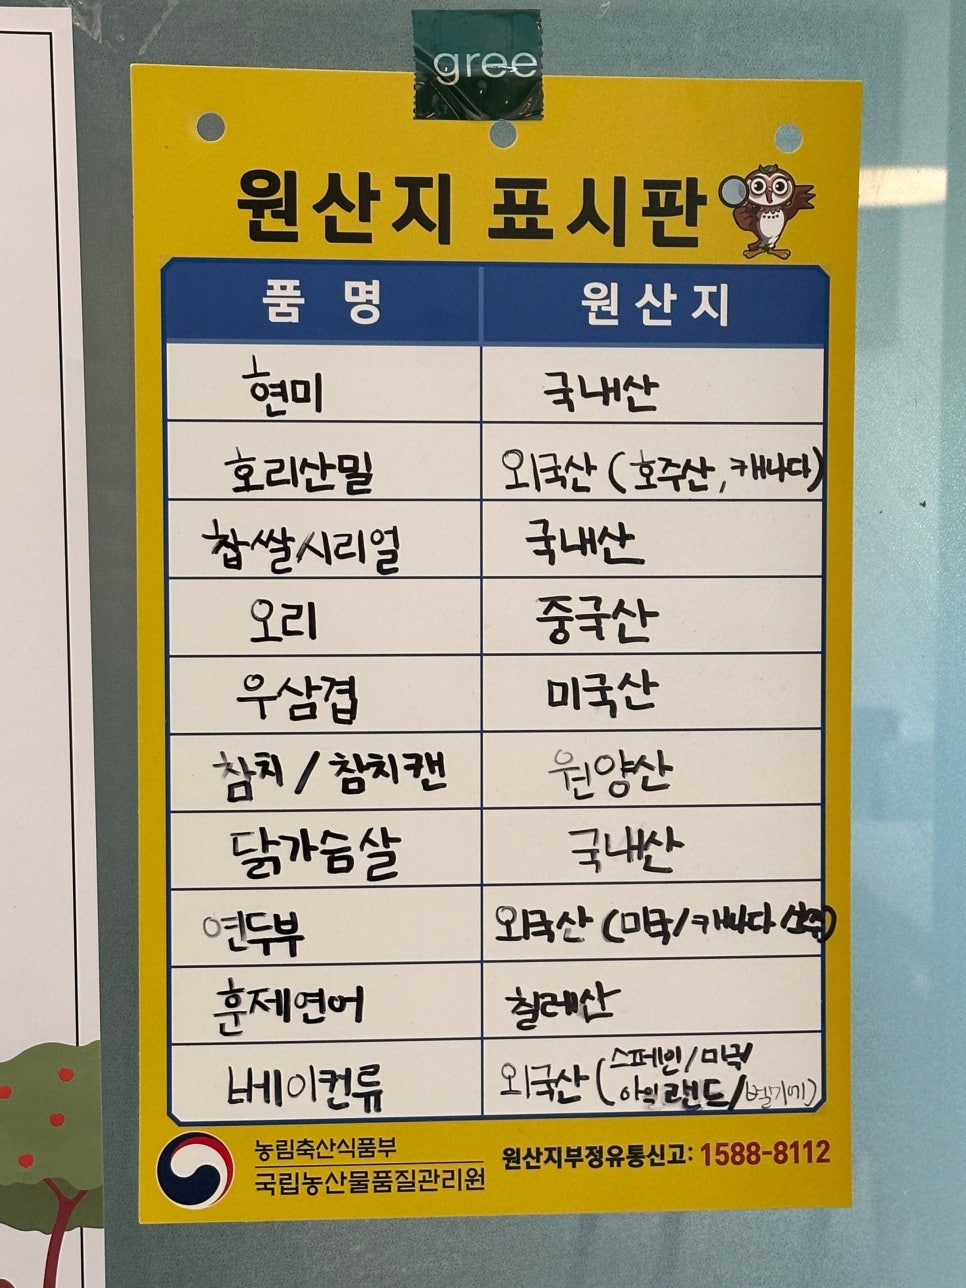 gree
원산지 표시판
품 명 원 산 지
현미 국내산
호리산밀 외국산 (호주산, 캐나다)
찹쌀시리얼 국내산
오리 중국산
우삼겹 미국산
참치 / 참치캔 원양산
닭가슴살 국내산
연두부 외국산 (미국/캐나다
훈제연어 칠레산
베이컨류 외국산 (스페인/미국/
아일랜드/벨기에)
농림축산식품부
국립농산물품질관리원
원산지부정유통신고: 1588-8112